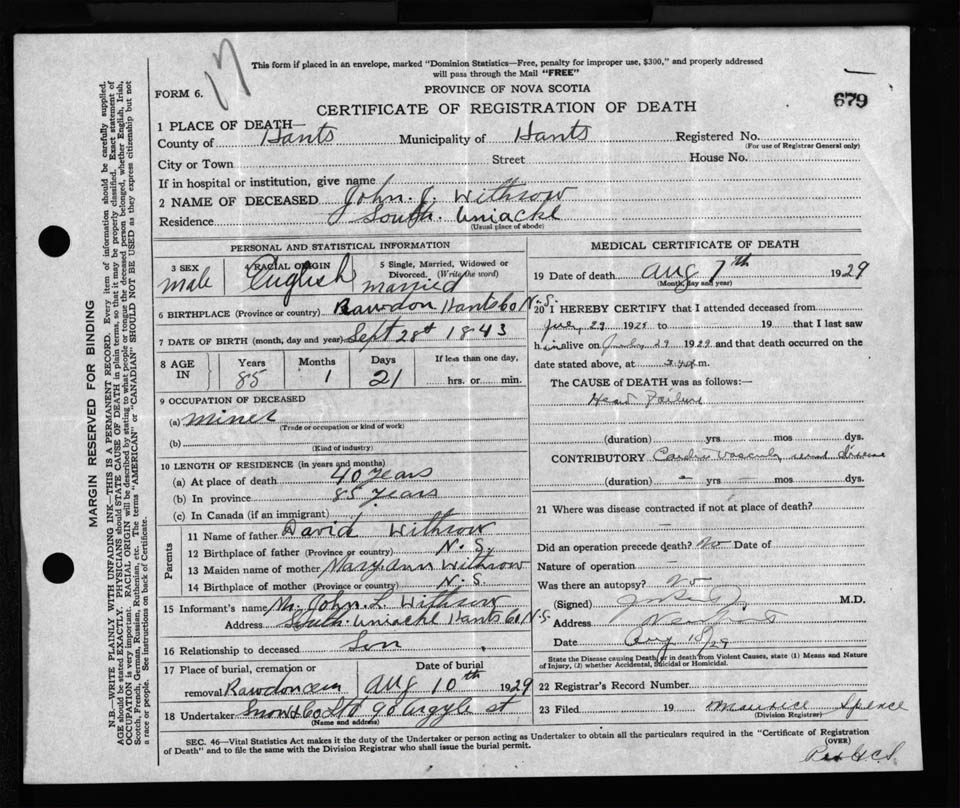 17
This form if placed in an envelope, marked "Dominion Statistics—Free, penalty for improper use, $300," and properly addressed
will pass through the Mail "FREE"
FORM 6.
PROVINCE OF NOVA SCOTIA
679
CERTIFICATE OF REGISTRATION OF DEATH
1 PLACE OF DEATH—
County of Hants Municipality of Hants Registered No.
(For use of Registrar General only)
City or Town Street House No.
If in hospital or institution, give name
2 NAME OF DECEASED John. J. Withrow
Residence South. Uniacke
(Usual place of abode)
PERSONAL AND STATISTICAL INFORMATION
3 SEX 4 RACIAL ORIGIN 5 Single, Married, Widowed or
Divorced. (Write the word)
male English married
6 BIRTHPLACE (Province or country) Rawdon Hants Co N.S.
7 DATE OF BIRTH (month, day and year) Sept 28th 1843
8 AGE IN Years Months Days If less than one day,
85 1 21 hrs. or min.
9 OCCUPATION OF DECEASED
(a) miner
(Trade or occupation or kind of work)
(b)
(Kind of industry)
10 LENGTH OF RESIDENCE (in years and months)
(a) At place of death 40 years
(b) In province 85 years
(c) In Canada (if an immigrant)
Parents
11 Name of father David Withrow
12 Birthplace of father (Province or country) N.S.
13 Maiden name of mother Maryann Withrow
14 Birthplace of mother (Province or country) N.S.
15 Informant's name Mr John. L. Withrow
Address South. Uniacke Hants Co N.S.
16 Relationship to deceased Son
17 Place of burial, cremation or Date of burial
removal Rawdon cem Aug 10th 1929
18 Undertaker Snow & Co Ltd 90 Argyle st
(Name and address)
MEDICAL CERTIFICATE OF DEATH
19 Date of death Aug 7th 1929
(Month, day and year)
20 I HEREBY CERTIFY that I attended deceased from
July 29 1929 to 19 that I last saw
h im alive on 29 1929 and that death occurred on the
date stated above, at m.
The CAUSE OF DEATH was as follows:—
Heart Failure
(duration) yrs mos dys.
CONTRIBUTORY Cardio Vascular renal disease
(duration) – yrs – mos dys.
21 Where was disease contracted if not at place of death?
—
Did an operation precede death? No Date of
Nature of operation —
Was there an autopsy? No
(Signed) M.D.
Address
Date Aug 18/29
State the Disease causing Death, or in death from Violent Causes, state (1) Means and Nature
of Injury, (2) whether Accidental, Suicidal or Homicidal.
22 Registrar's Record Number
23 Filed 19 Maurice Spence
(Division Registrar)
SEC. 46—Vital Statistics Act makes it the duty of the Undertaker or person acting as Undertaker to obtain all the particulars required in the "Certificate of Registration
of Death" and to file the same with the Division Registrar who shall issue the burial permit.
(OVER)
MARGIN RESERVED FOR BINDING
N.B.—WRITE PLAINLY WITH UNFADING INK—THIS IS A PERMANENT RECORD. Every item of information should be carefully supplied.
AGE should be stated EXACTLY. PHYSICIANS should STATE CAUSE OF DEATH in plain terms, so that it may be properly classified. Exact statement of
OCCUPATION is very important. RACIAL ORIGIN will be described by stating to what people or tongue the deceased person belonged, whether English, Irish,
Scotch, French, German, Russian, Ruthenian, etc. The terms "AMERICAN" or "CANADIAN" SHOULD NOT BE USED as they express citizenship but not
a race or people. See instructions on back of Certificate.